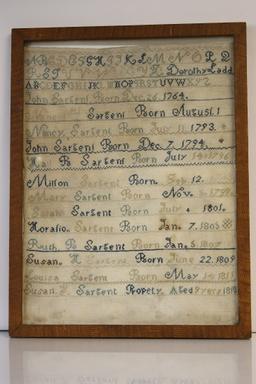 A B C D E F G H I K L M N O P Q
R S T U V W X Y Z Dorothy Ladd
ABCDEFGHIJK MNOPQRSTUVWXYZ
John Sartent Born Dec 26. 1764.
Sartent Born August 1
Nancy Sartent Born July 11 1793.
John Sartent Born Dec. 7. 1794.
B Sartent Born July 1796
Milton Sartent Born. Feb 12.
Mary Sartent Born Nov.
Sarah Sartent Born July 4 1801.
Horatio. Sartent Born Jan. 7. 1803
Ruth. B. Sartent Born Jan. 5 1807
Susan. H Sartent Born June 22. 1809
Louisa Sartent Born May 14 1811
Susan. H. Sartent Propety. Ated 9 years 1818